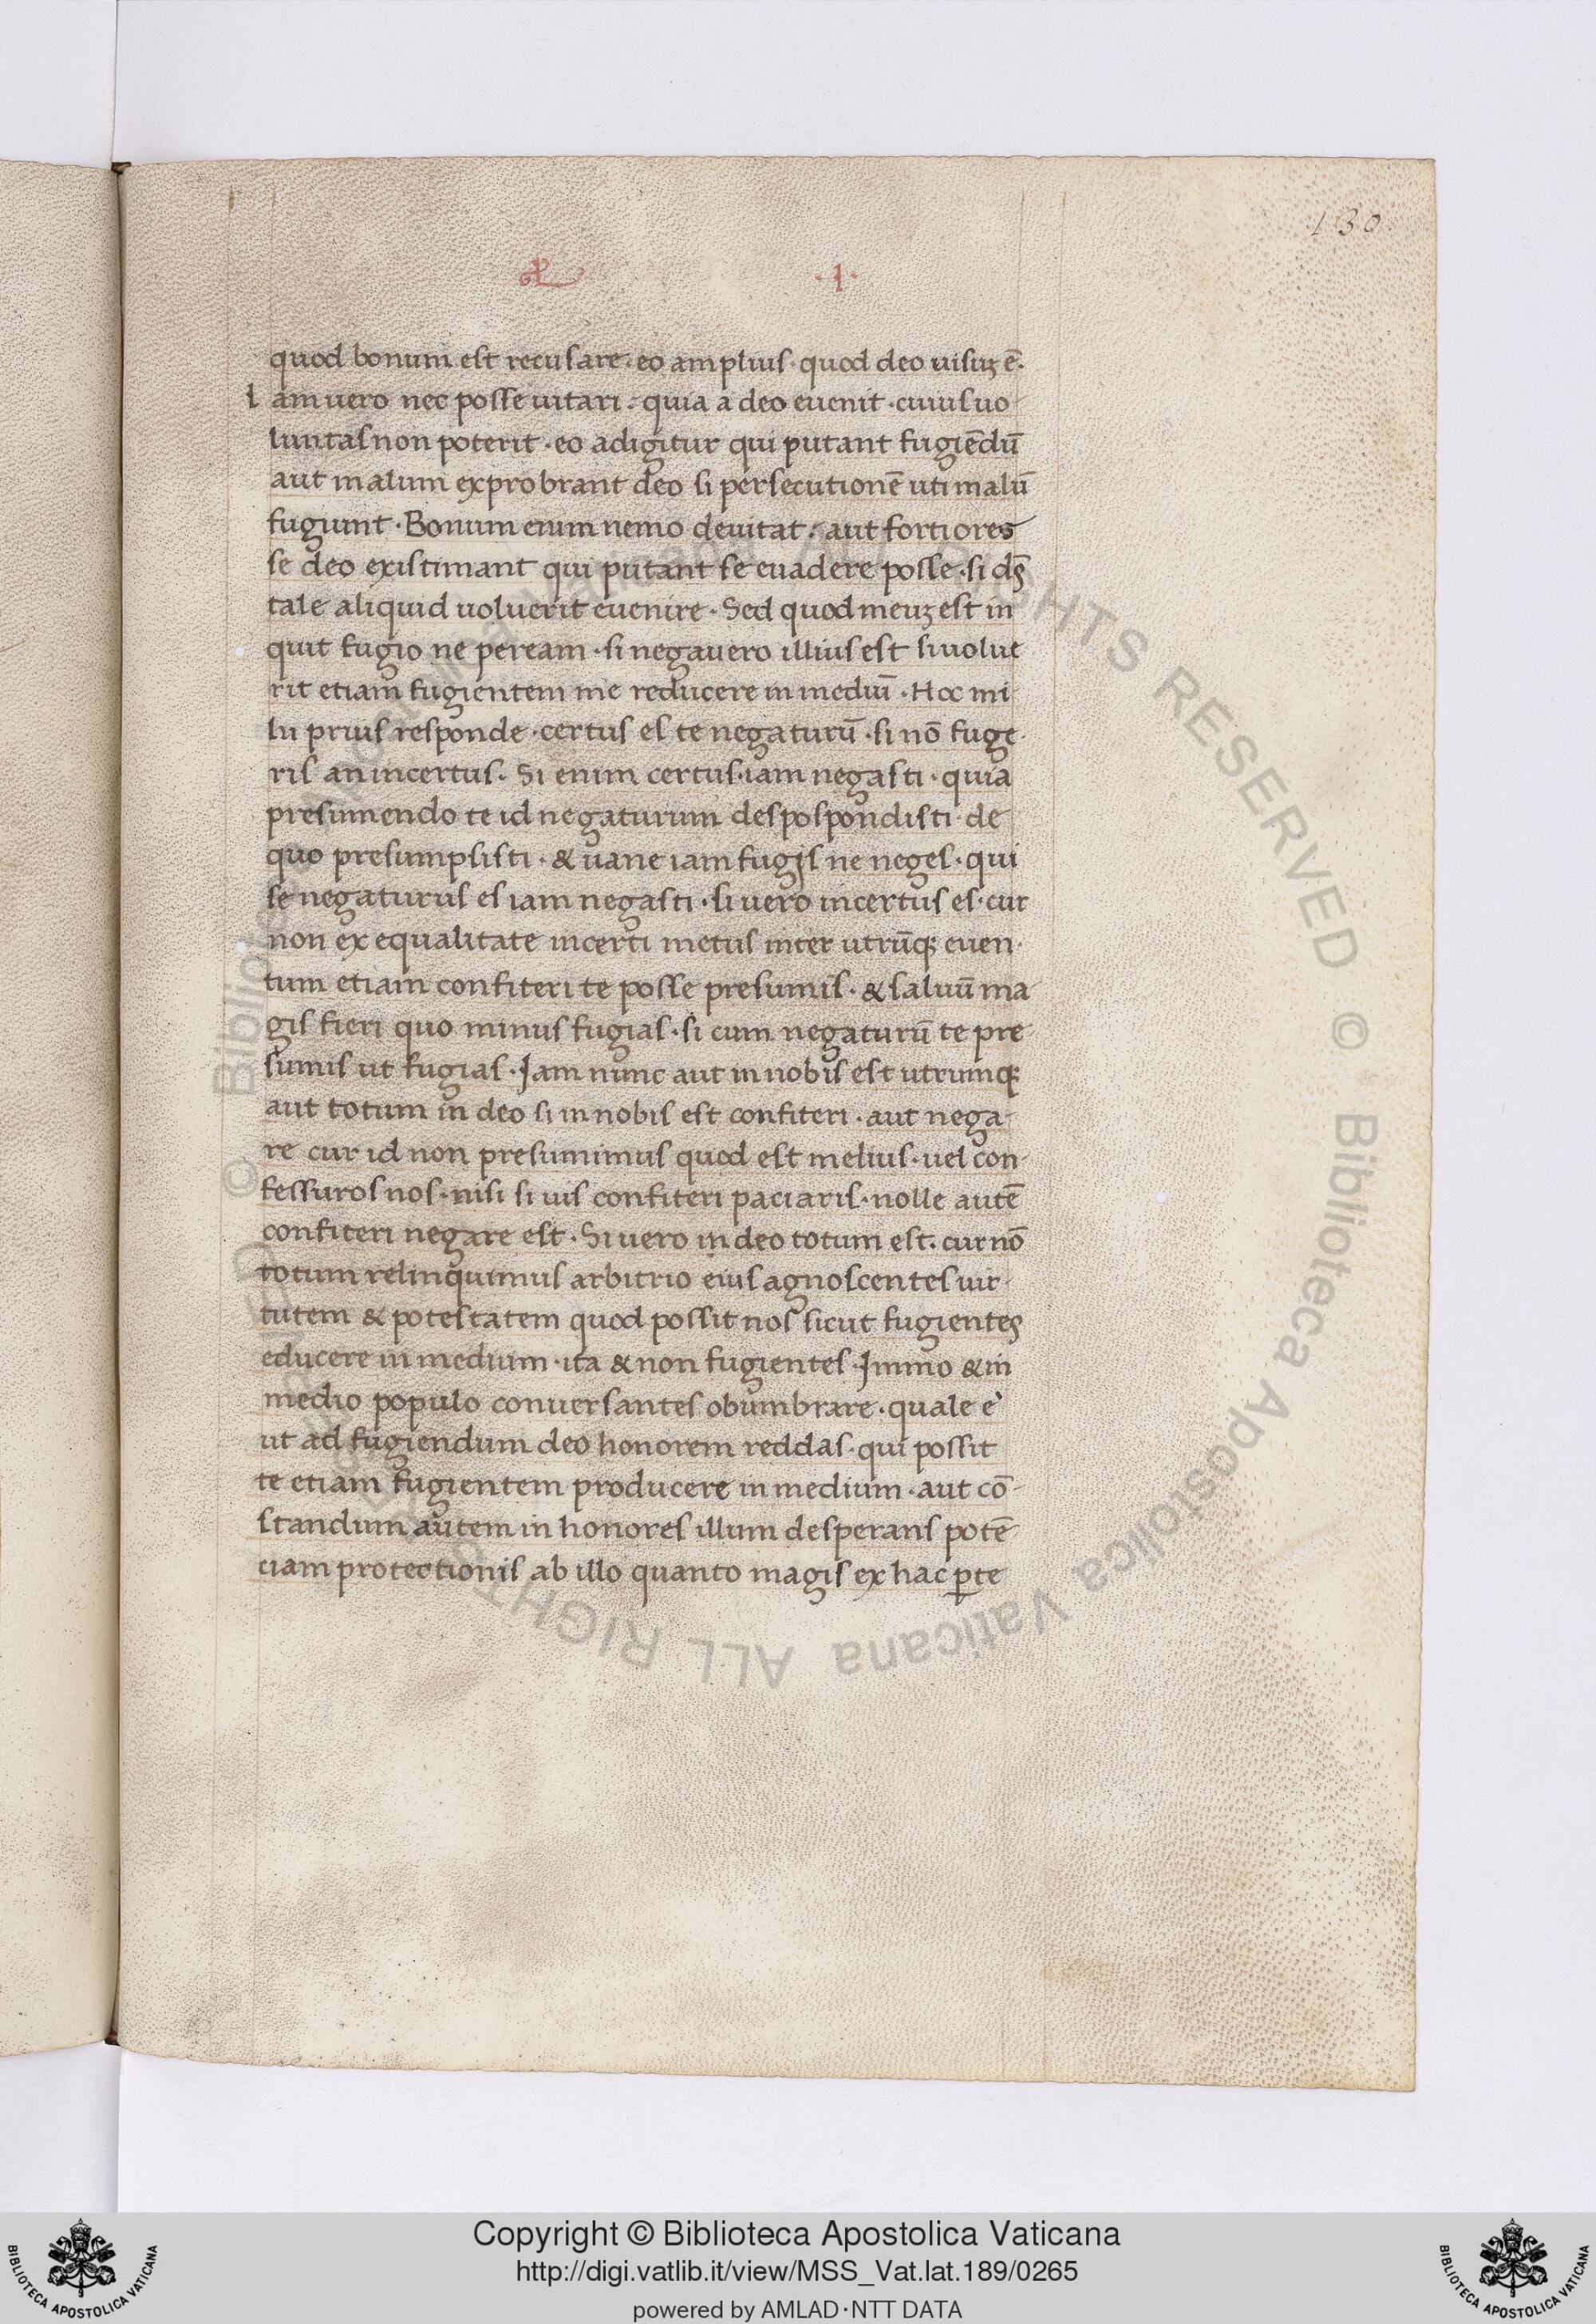 130
·I·
quod bonum est recusare · eo amplius · quod deo uisuʒ ē·
I am uero nec posse uitari · quia a deo euenit · cuius uo
luntas non poterit · eo adigitur qui putant fugiēdū
aut malum exprobrant deo si persecutionē uti malū
fugiunt · Bonum enim nemo deuitat · aut fortiores
se deo existimant qui putant se euadere posse · si ds̄
tale aliquid uoluerit euenire · Sed quod meuʒ est in
quit fugio ne peream · si negauero illius est si uolue
rit etiam fugientem me reducere in mediū · Hoc mi
hi prius responde · certus es te negaturū · si nō fuge
ris an incertus · Si enim certus · iam negasti · quia
presumendo te id negaturum despospondisti · de
quo presumpsisti · & uane iam fugis ne neges · qui
se negaturus es iam negasti · si uero incertus es · cur
non ex equalitate incerti metus inter utrūqʒ euen
tum etiam confiteri te posse presumis · & saluū ma
gis fieri quo minus fugias · si cum negaturū te pre
sumis ut fugias · Iam nunc aut in nobis est utrumqʒ
aut totum in deo si in nobis est confiteri · aut nega
re cur id non presumimus quod est melius · uel con
fessuros nos · nisi si uis confiteri paciaris · nolle autē
confiteri negare est · Si uero in deo totum est · cur nō
totum relinquimus arbitrio eius agnoscentes uir
tutem & potestatem quod possit nos sicut fugientes
educere in medium · ita & non fugientes · Immo & in
medio populo conuersantes obumbrare · quale ē
ut ad fugiendum deo honorem reddas · qui possit
te etiam fugientem producere in medium · aut cō
standum autem in honores illum desperans potē
ciam protectionis ab illo quanto magis ex hac ꝑte
© Biblioteca Apostolica Vaticana ALL RIGHTS RESERVED
Copyright © Biblioteca Apostolica Vaticana
http://digi.vatlib.it/view/MSS_Vat.lat.189/0265
powered by AMLAD·NTT DATA
BIBLIOTECA APOSTOLICA VATICANA
BIBLIOTECA APOSTOLICA VATICANA